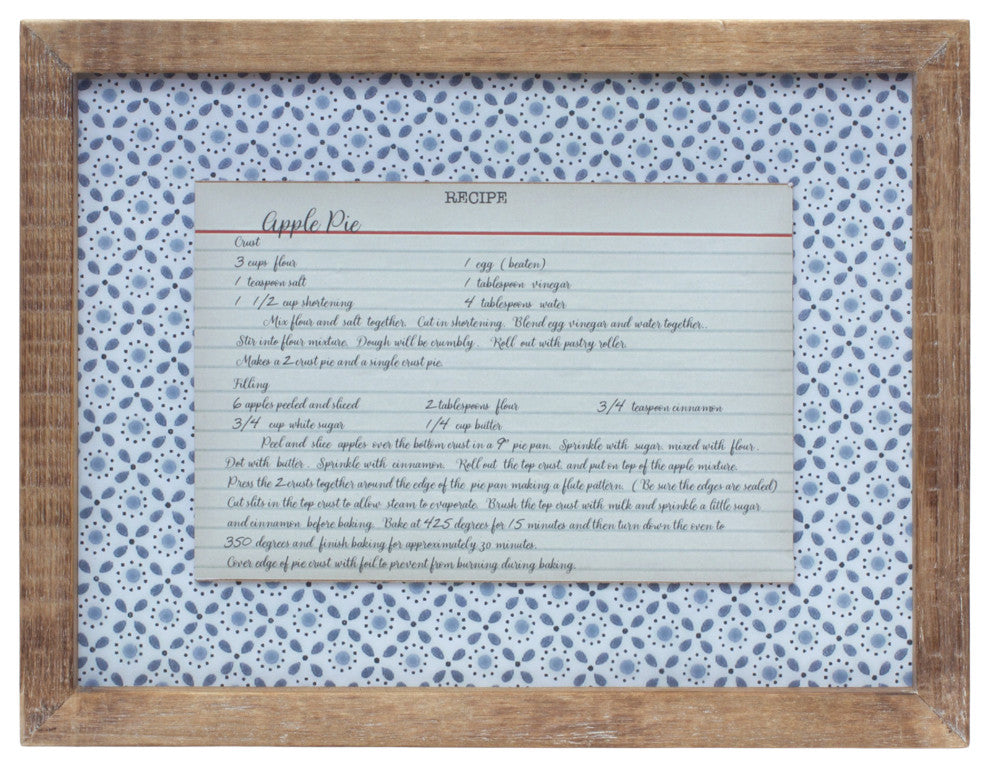 RECIPE
Apple Pie
Crust
3 cups flour 1 egg (beaten)
1 teaspoon salt 1 tablespoon vinegar
1 1/2 cup shortening 4 tablespoons water
Mix flour and salt together. Cut in shortening. Blend egg vinegar and water together..
Stir into flour mixture. Dough will be crumbly. Roll out with pastry roller.
Makes a 2 crust pie and a single crust pie.
Filling
6 apples peeled and sliced 2 tablespoons flour 3/4 teaspoon cinnamon
3/4 cup white sugar 1/4 cup butter
Peel and slice apples over the bottom crust in a 9" pie pan. Sprinkle with sugar, mixed with flour.
Dot with butter. Sprinkle with cinnamon. Roll out the top crust, and put on top of the apple mixture.
Press the 2 crusts together around the edge of the pie pan making a flute pattern. (Be sure the edges are sealed)
Cut slits in the top crust to allow steam to evaporate. Brush the top crust with milk and sprinkle a little sugar
and cinnamon before baking. Bake at 425 degrees for 15 minutes and then turn down the oven to
350 degrees and finish baking for approximately 30 minutes.
Cover edge of pie crust with foil to prevent from burning during baking.